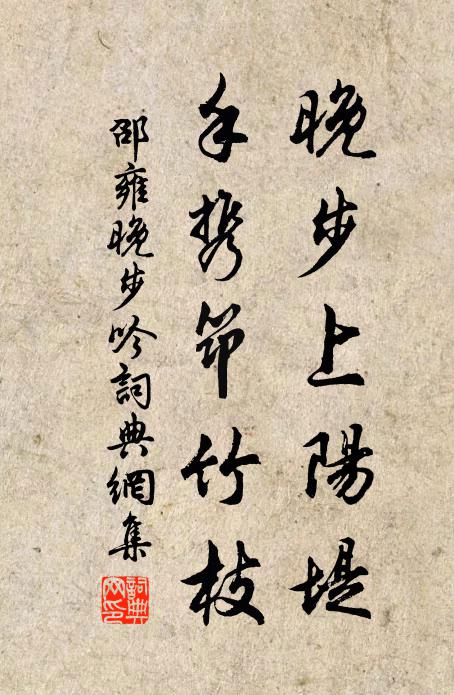 晚步上陽堤
手携筇竹枝
邵雍晚步吟詞典網集
詞典網印